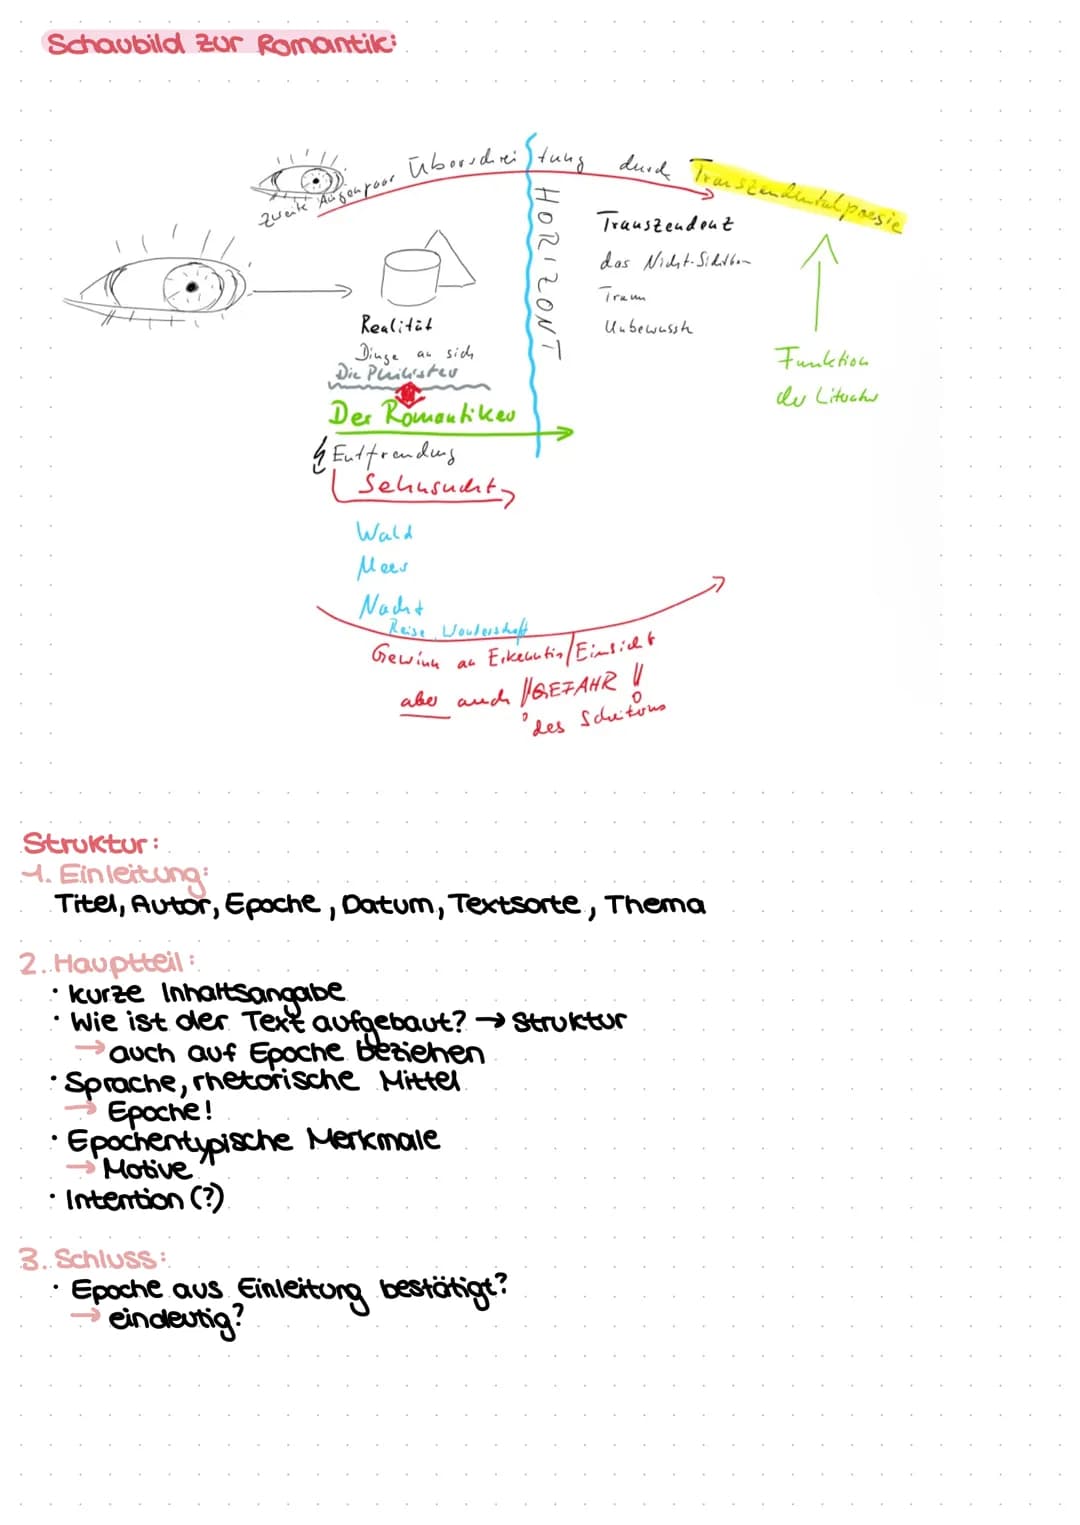 Schaubild zur Romantik:
zweite Augenpaar Überschreitung durch Transzendentalpoesie
HORIZONT
Transzendent
das Nicht-Sichtbar
Traum
Unbewusste
Realität
Dinge an sich
Die Philister
Der Romantiker
Entfremdung
Sehnsucht
Funktion
der Literatur
Wald
Meer
Nacht
Reise, Wanderschaft
Gewinn an Erkenntnis/Einsicht
aber auch !!GEFAHR!!
des Scheiterns
Struktur:
1. Einleitung:
Titel, Autor, Epoche, Datum, Textsorte, Thema
2. Hauptteil:
· kurze Inhaltsangabe
· Wie ist der Text aufgebaut? → Struktur
→ auch auf Epoche beziehen
· Sprache, rhetorische Mittel
→ Epoche!
· Epochentypische Merkmale
→ Motive
· Intention (?)
3. Schluss:
· Epoche aus Einleitung bestätigt?
→ eindeutig?